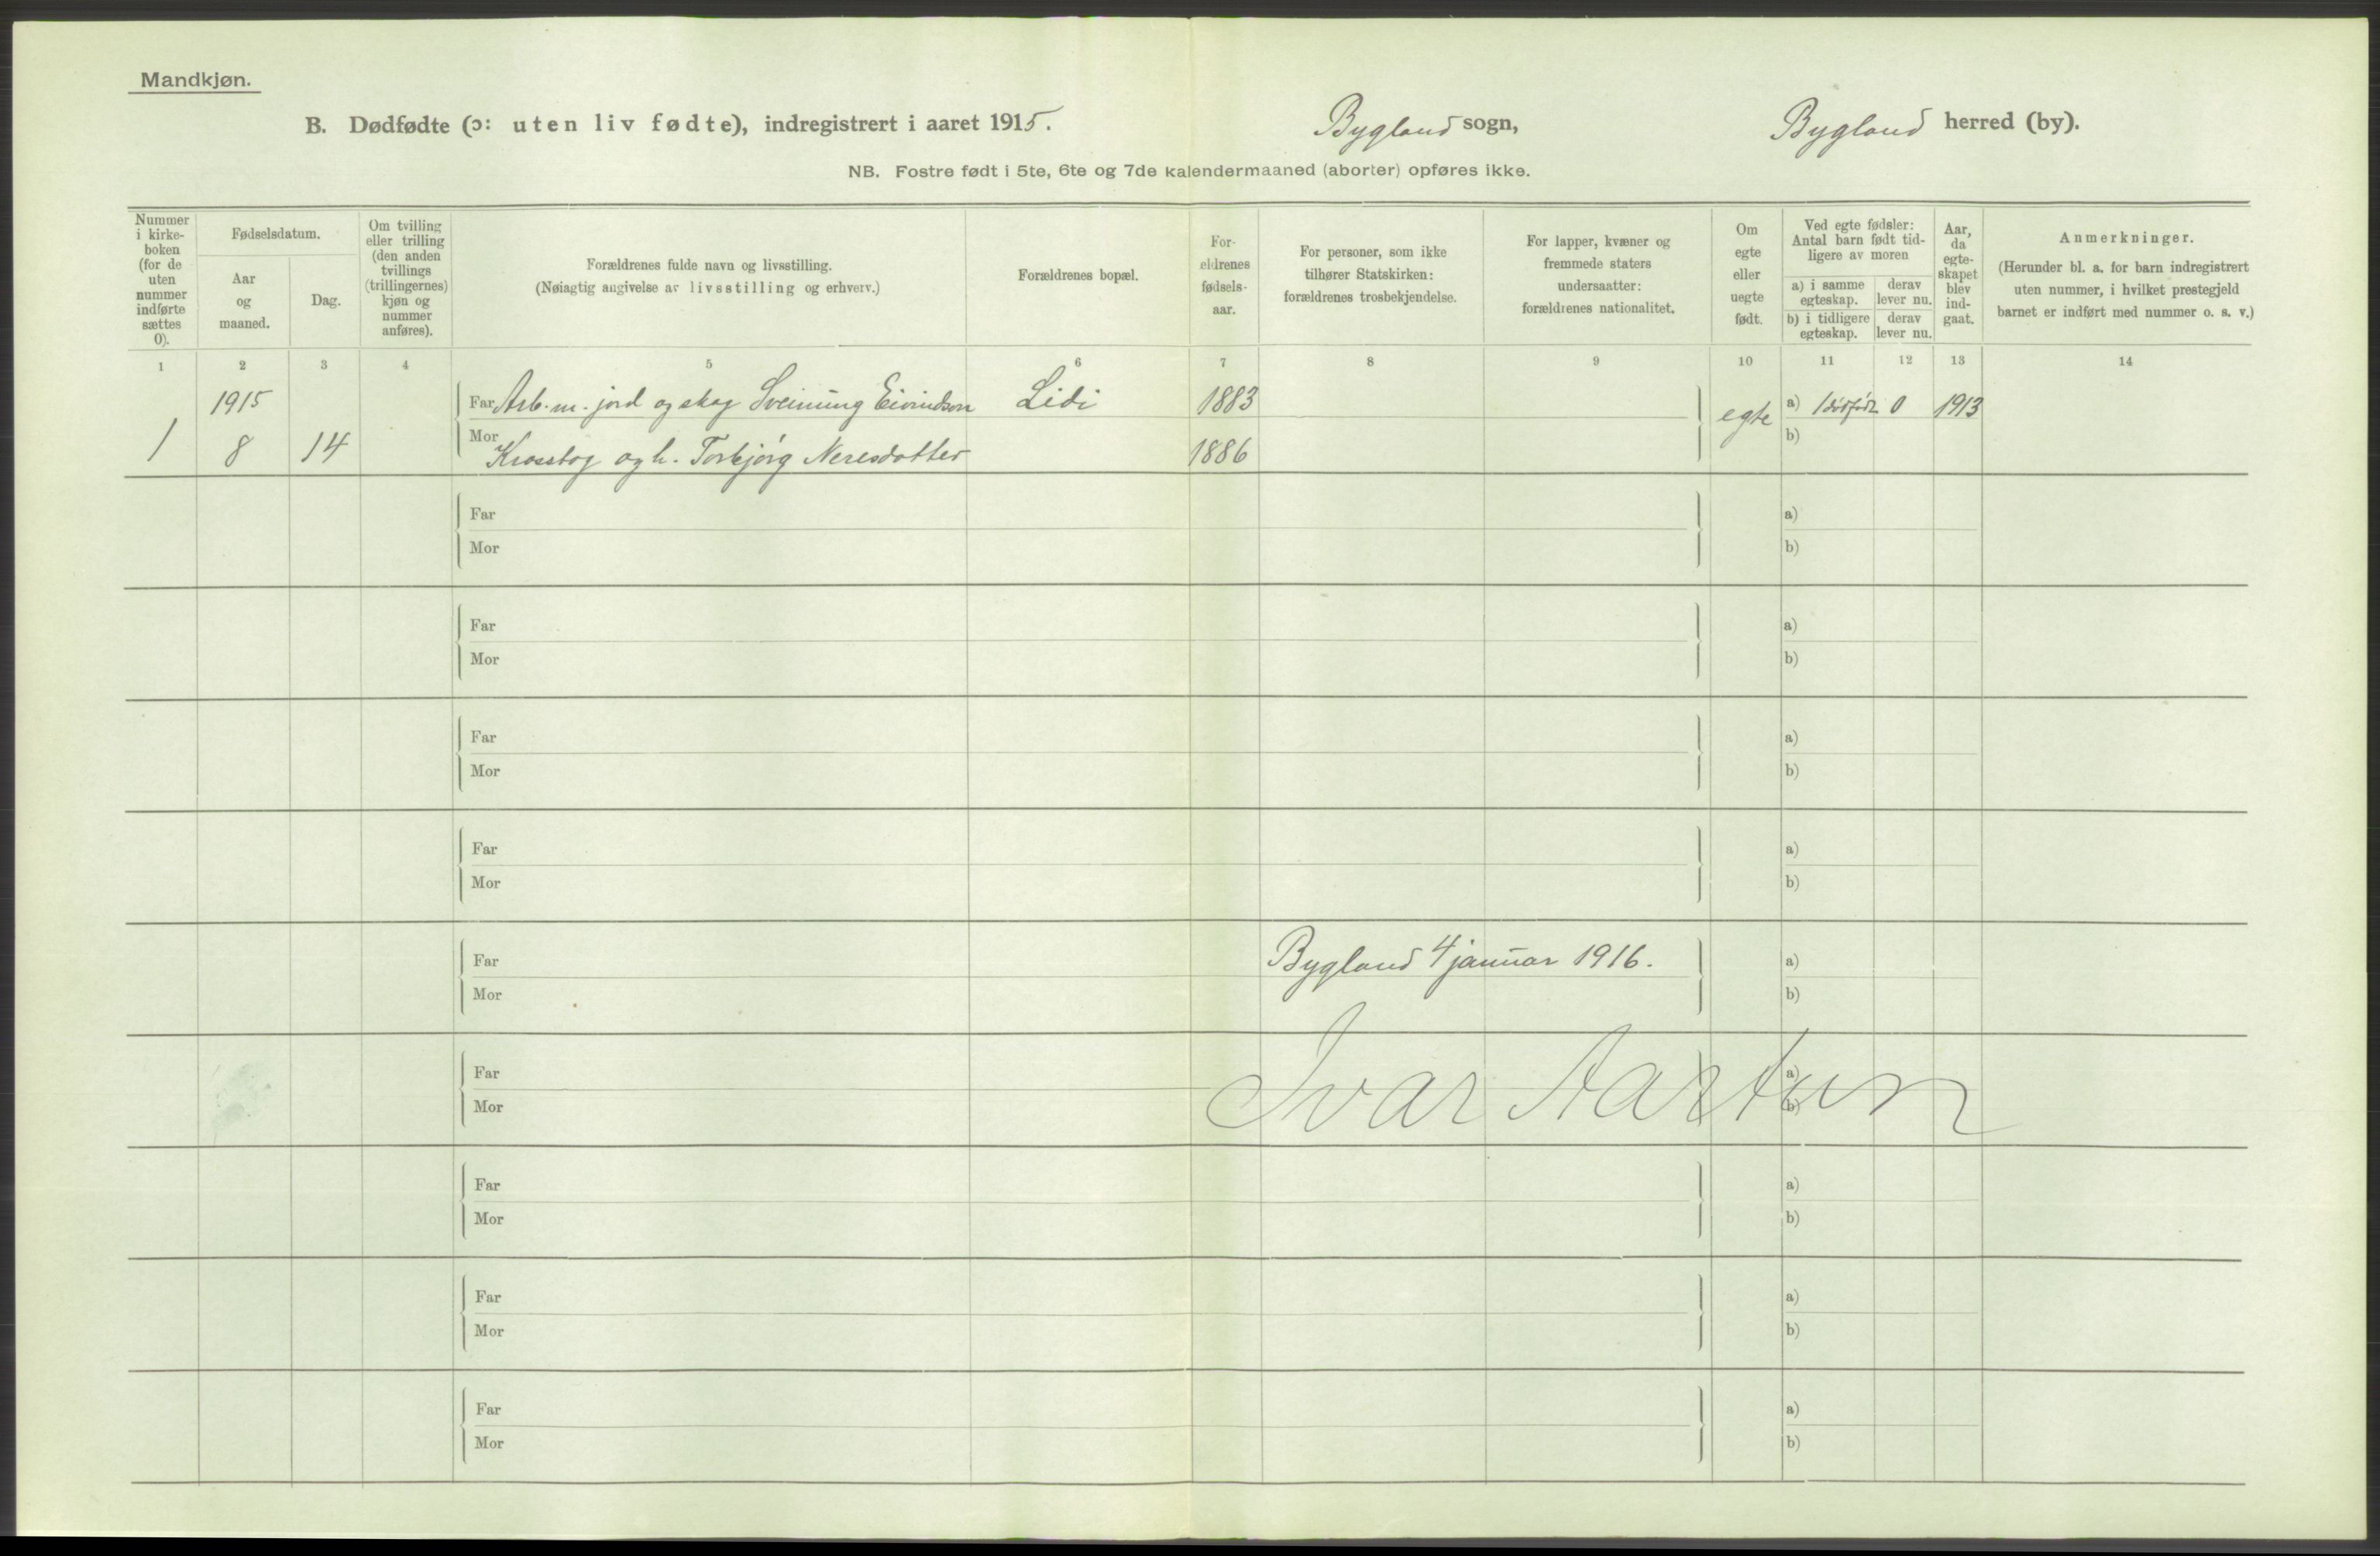 Mandkjøn.
B. Dødfødte (ɔ: uten liv fødte), indregistrert i aaret 1915. Bygland sogn, Bygland herred (by).
NB. Fostre født i 5te, 6te og 7de kalendermaaned (aborter) opføres ikke.
Nummer
i kirke-
boken
(for de
uten
nummer
indførte
sættes
0).
Fødselsdatum.
Aar
og
maaned.
Dag.
Om tvilling
eller trilling
(den anden
tvillings
(trillingernes)
kjøn og
nummer
anføres).
Forældrenes fulde navn og livsstilling.
(Nøiagtig angivelse av livsstilling og erhverv.)
Forældrenes bopæl.
For-
ældrenes
fødsels-
aar.
For personer, som ikke
tilhører Statskirken:
forældrenes trosbekjendelse.
For lapper, kvæner og
fremmede staters
undersaatter:
forældrenes nationalitet.
Om
egte
eller
uegte
født.
Ved egte fødsler:
Antal barn født tid-
ligere av moren
a) i samme
egteskap.
derav
lever nu.
b) i tidligere
egteskap.
derav
lever nu.
Aar,
da
egte-
skapet
blev
ind-
gaat.
Anmerkninger.
(Herunder bl. a. for barn indregistrert
uten nummer, i hvilket prestegjeld
barnet er indført med nummer o. s. v.)
1 2 3 4 5 6 7 8 9 10 11 12 13 14
1915 Far Arb. m. jord og skog Sveinung Eivindson Lidi 1883 egte a) 1 dødfødt 0 1913
1 8 14 Mor og h. Torbjørg Neresdotter 1886 b)
Far a)
Mor b)
Far a)
Mor b)
Far a)
Mor b)
Far a)
Mor b)
Far Bygland 4 januar 1916. a)
Mor b)
Far Ivar Aartun a)
Mor b)
Far a)
Mor b)
Far a)
Mor b)
Far a)
Mor b)